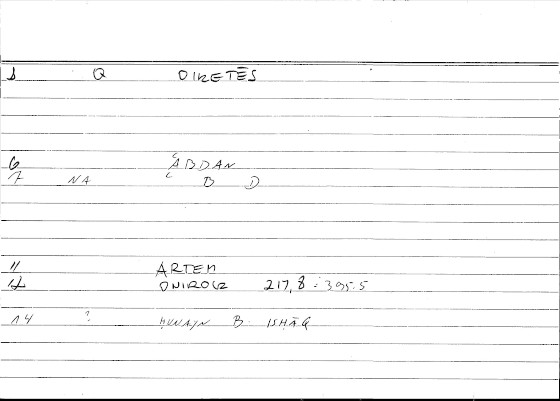 1 Q OIKETĒS
6 ʿABDAN
7 NA ʿ B D
11 ARTEM
12 ONIROCR 217,8 : 395.5
14 ? ḤUNAYN B. ISḤĀQ